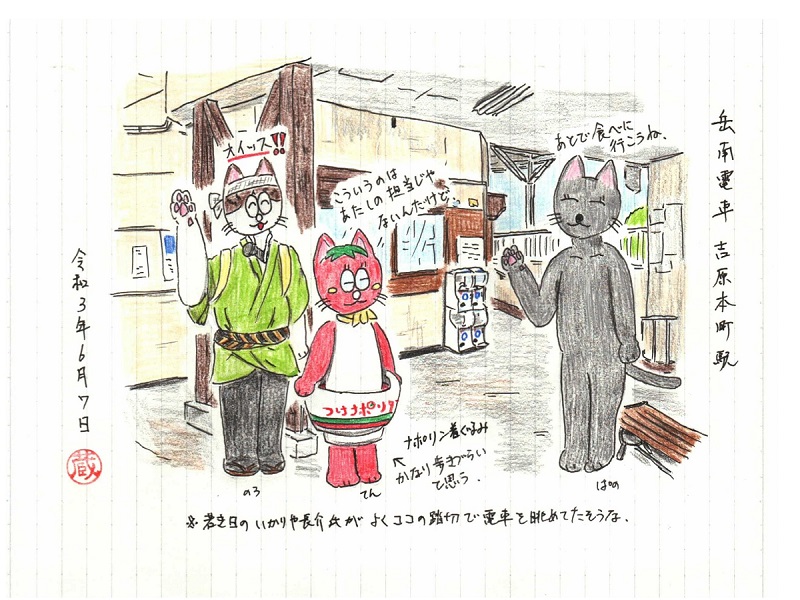 岳南電車 吉原本町駅
あとで食べに
行こうね。
オイッス!!
こういうのは
あたしの担当じゃ
ないんだけど
つけナポリタン
ナポリン着ぐるみ
かなり歩きづらい
と思う。
のろ
てん
ぱの
※若き日のいかりや長介氏がよくココの踏切で電車を眺めてたそうな。
令和3年6月7日
蔵